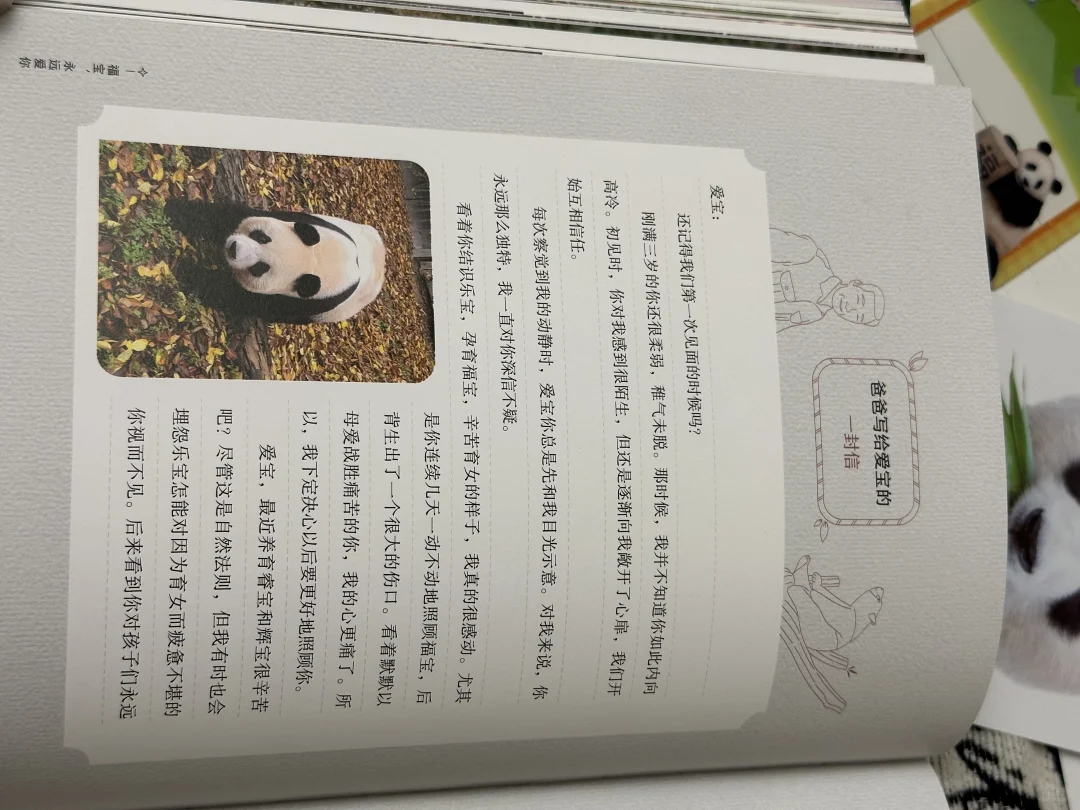 爸爸写给爱宝的
一封信
爱宝：
还记得我们第一次见面的时候吗？
刚满三岁的你还很柔弱，稚气未脱。那时候，我并不知道你如此内向
高冷。初见时，你对我感到很陌生，但还是逐渐向我敞开了心扉，我们开
始互相信任。
每次察觉到我的动静时，爱宝你总是先和我目光示意。对我来说，你
永远那么独特，我一直对你深信不疑。
看着你结识乐宝，孕育福宝，辛苦育女的样子，我真的很感动。尤其
是你连续几天一动不动地照顾福宝，后
背生出了一个很大的伤口。看着默默以
母爱战胜痛苦的你，我的心更痛了。所
以，我下定决心以后要更好地照顾你。
爱宝，最近养育睿宝和辉宝很辛苦
吧？尽管这是自然法则，但我有时也会
埋怨乐宝怎能对因为育女而疲惫不堪的
你视而不见。后来看到你对孩子们永远
福宝，永远爱你